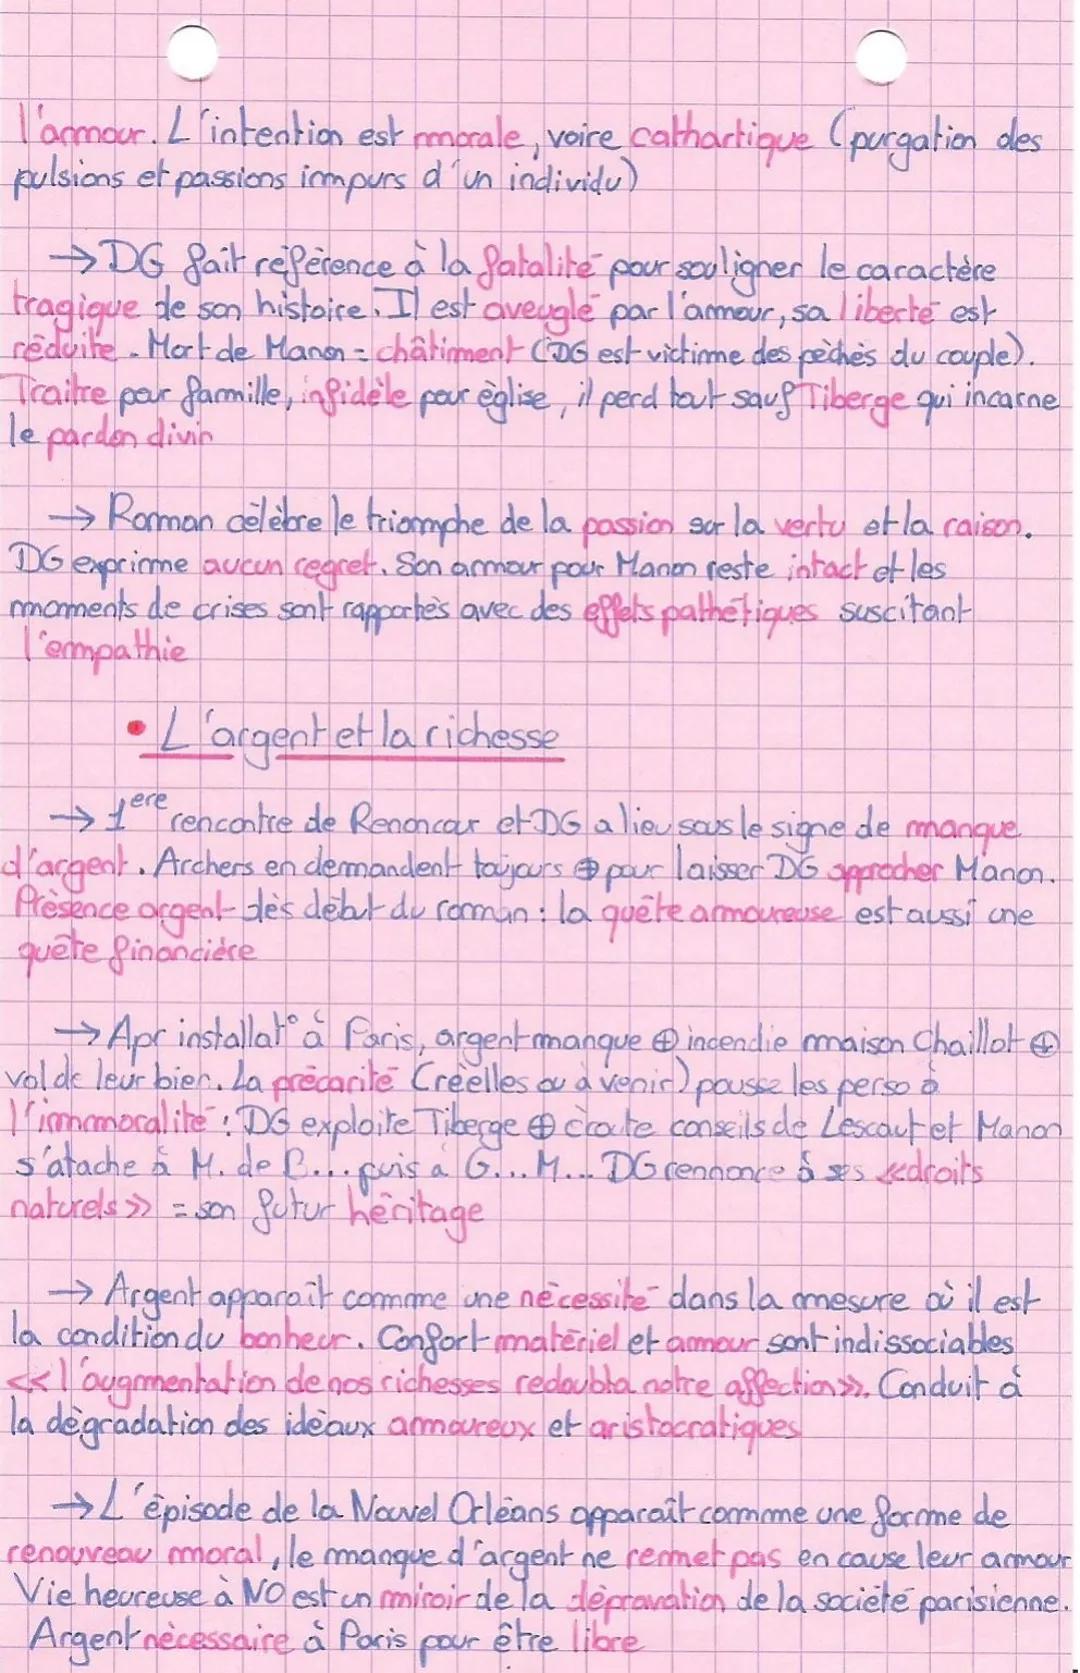 l'amour. L'intention est morale, voire cathartique (purgation des
pulsions et passions impurs d'un individu)
→ DG fait référence à la fatalité pour souligner le caractère
tragique de son histoire. Il est aveuglé par l'amour, sa liberté est
réduite. Mort de Manon = châtiment (DG est victime des péchés du couple).
Traitre pour famille, infidèle pour église, il perd tout sauf Tiberge qui incarne
le pardon divin
→ Roman célèbre le triomphe de la passion sur la vertu et la raison.
DG exprime aucun regret. Son amour pour Manon reste intact et les
moments de crises sont rapportés avec des effets pathétiques suscitant
l'empathie
• L'argent et la richesse
→ 1ere rencontre de Renoncour et DG a lieu sous le signe de manque
d'argent. Archers en demandent toujours ⊕ pour laisser DG approcher Manon.
Présence argent dès début du roman : la quête amoureuse est aussi une
quête financière
→ Apr installat° à Paris, argent manque ⊕ incendie maison Chaillot ⊕
vol de leur bien. La précarité (réelles ou à venir) pousse les perso à
l'immoralité : DG exploite Tiberge ⊕ écoute conseils de Lescaut et Manon
s'atache à M. de B... puis à G... M... DG rennonce à ses «droits
naturels» = son futur héritage
→ Argent apparaît comme une nécessité dans la mesure où il est
la condition du bonheur. Confort matériel et amour sont indissociables
«l'augmentation de nos richesses redoubla notre affection». Conduit à
la dégradation des idéaux amoureux et aristocratiques
→ L'épisode de la Nouvel Orléans apparaît comme une forme de
renouveau moral, le manque d'argent ne remet pas en cause leur amour
Vie heureuse à NO est un miroir de la dépravation de la société parisienne.
Argent nécessaire à Paris pour être libre